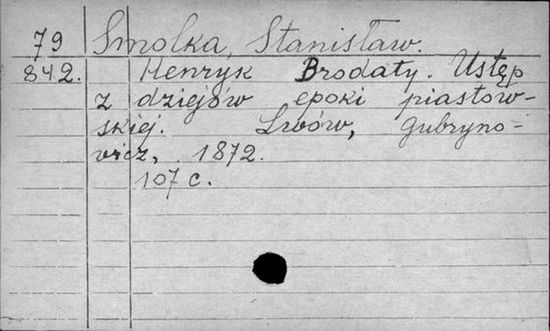 79 Smolka, Stanisław.
842. Henryk Brodaty. Ustęp
z dziejów epoki piastow-
skiej. Lwów, Gubryno-
vicz, 1872.
107 c.